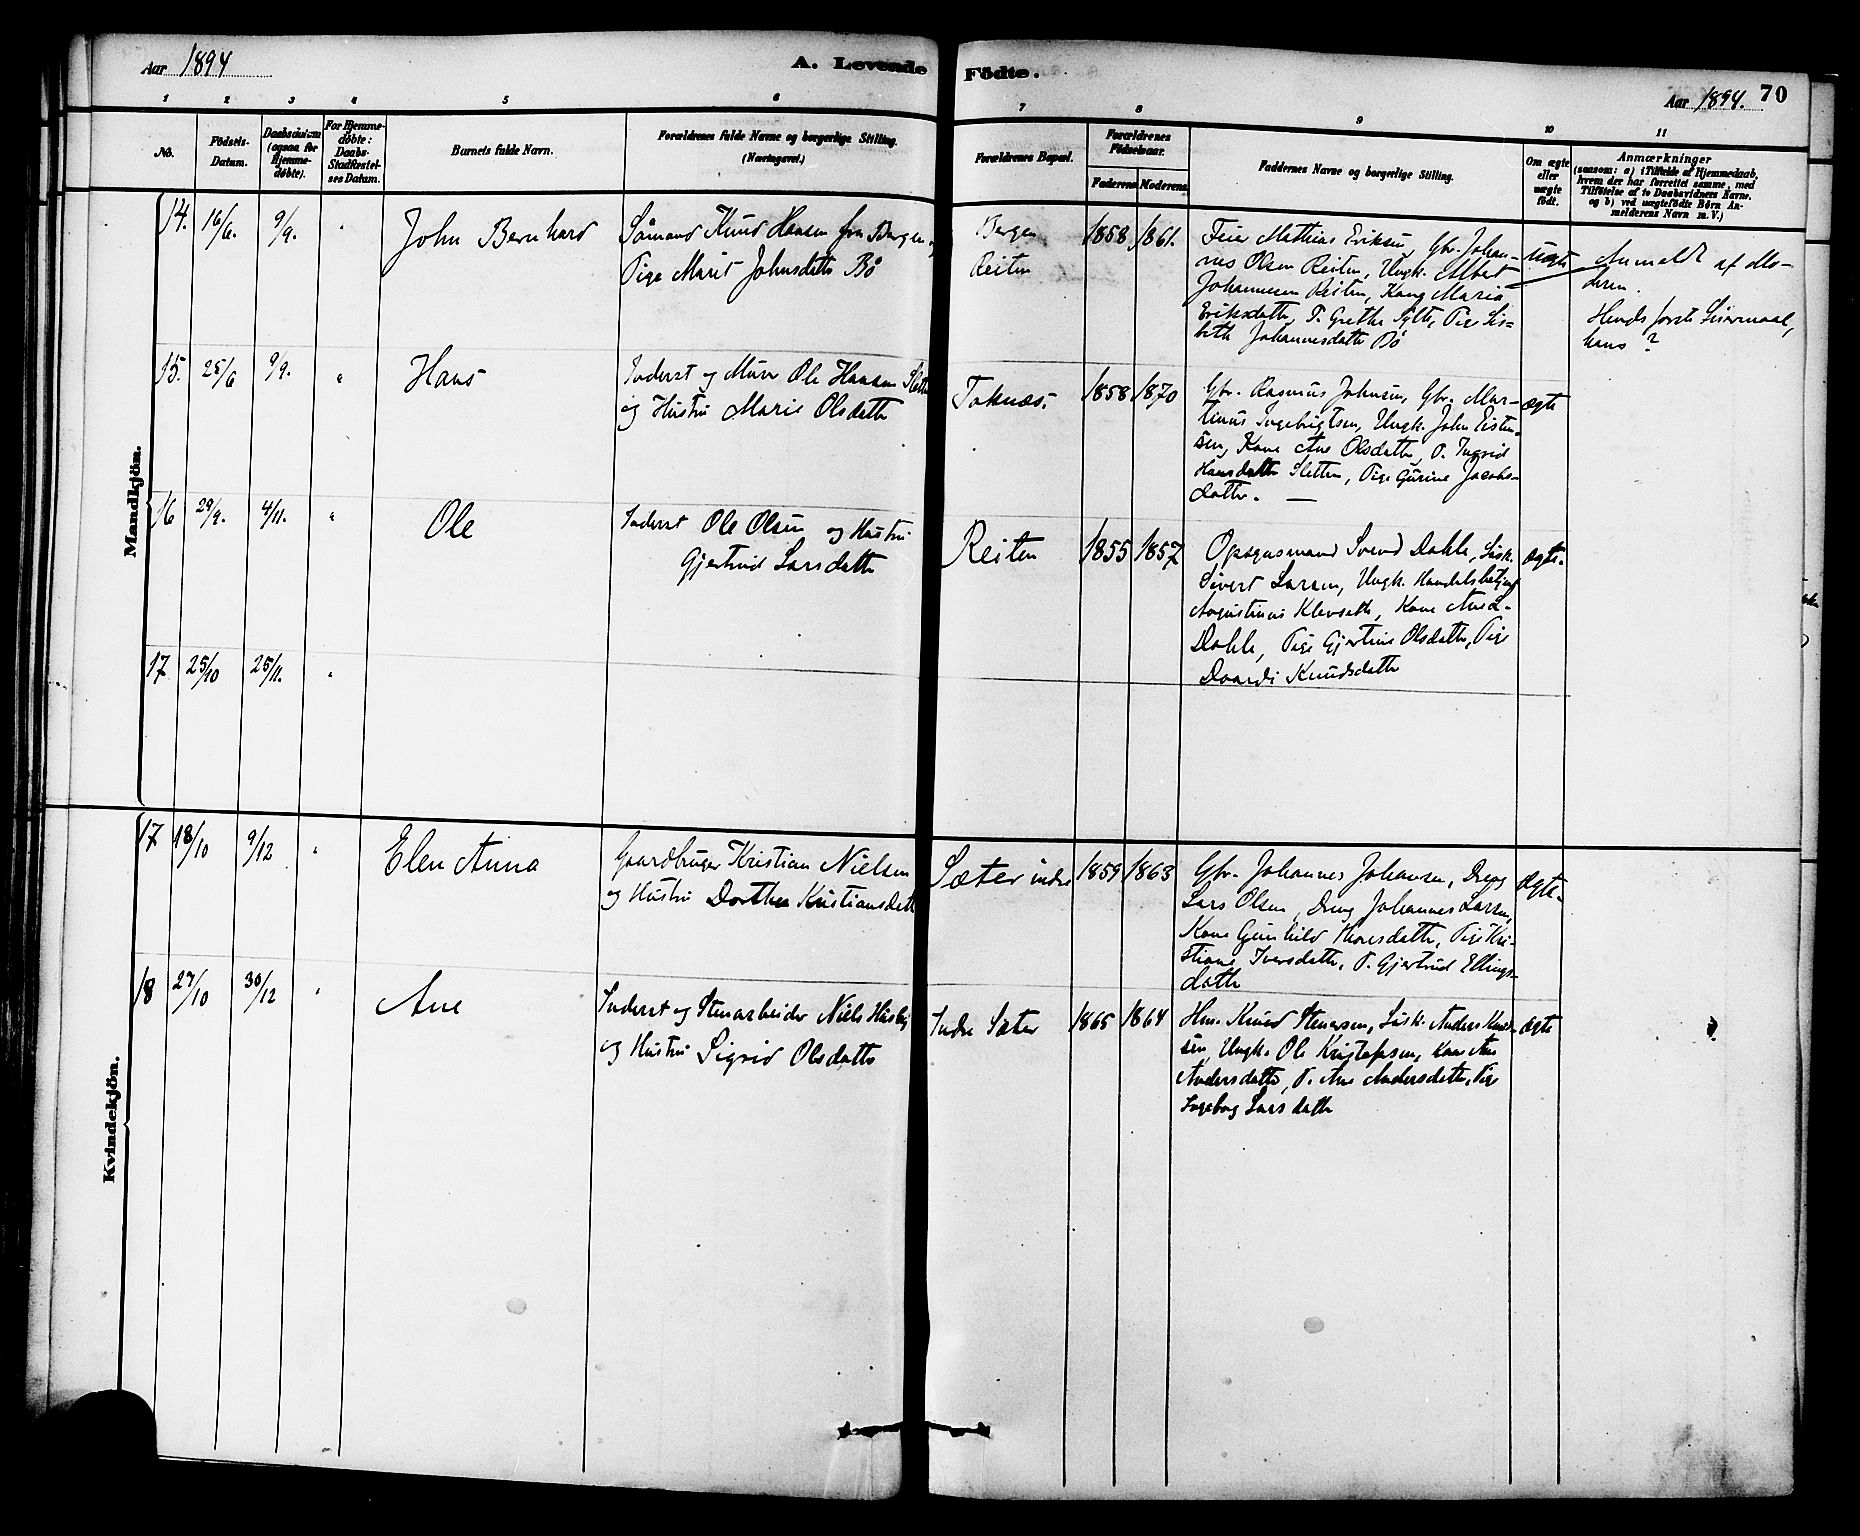 Aar 1894
A. Levende Födte.
Aar 1894. 70
1 2 3 4 5 6 7 8 9 10 11
No.
Födsels-
Datum.
Daabsdatum
(ogsaa for
Hjemme-
døbte).
For Hjemme-
døbte:
Daabs-
Stadfæstel-
ses Datum.
Barnets fulde Navn.
Forældrenes fulde Navne og borgerlige Stilling.
(Næringsvei.)
Forældrenes Bopæl.
Forældrenes
Födselsaar.
Faderens Moderens
Faddernes Navne og borgerlige Stilling.
Om ægte
eller
uægte
födt.
Anmærkninger
(saasom: a) i Tilfælde af Hjemmedaab,
hvem der har forrettet samme, med
Tilföielse af to Daabsvidners Navne.
og b) ved uægtefödte Börn An-
melderens Navn m. V.)
Mandkjön.
14. 16/6. 9/9. "
John Bernhard
Sömand Knud Hansen fra Bergen og
Pige Marit Johnsdatter Bö
Bergen
Reiten
1858. 1861.
Feier Mathias Eriksen, Gbr. Johan-
nes Olsen Reiten, Ungk. Albert
Johannesen Reiten, Kone Maria
Eriksdatter, P. Grethe Sylte, Pige Lis-
beth Johannesdatter Bö
uægte
Anmeldt af Mo-
deren.
Hends förste Leiermaal,
hans ?
15. 25/6 9/9. "
Hans
Inderst og Murer Ole Hansen Sletten
og Hustru Marie Olsdatter
Taknæs.
1858. 1870
Gbr. Rasmus Johnsen, Gbr. Mar-
tinus Ingebrigtsen, Ungk. John Eisten-
sen, Kone Ane Olsdatter, P. Ingrid
Hansdatter Sletten, Pige Gurine Jacobs-
datter.
ægte
16 29/9. 4/11. "
Ole
Inderst Ole Olsen og Hustru
Gjertrud Larsdatter
Reiten
1855 1857
Opsynsmand Svend Dahle,
Sivert Larsen, Ungk. Handelsbetjent
Augustinus Klevseth, Kone Ane L.
Dahle, Pige Gjertine Olsdatter, Pige
Daardi Knudsdatter
ægte.
17 25/10 25/11. "
Kvindekjön.
17 18/10 9/12 "
Elen Anna
Gaardbruger Kristian Nielsen
og Hustru Dorthea Kristiansdatter
Sæter indre
1859 1863
Gbr. Johannes Johansen, Dreng
Lars Olsen, Dreng Johannes Larsen,
Kone Gunhild Thoresdatter, Pige Kri-
stiane Iversdatter, P. Gjertrud Ellings-
datter
ægte.
18 27/10 30/12 "
Ane
Inderst og Stenarbeider Niels Husby
og Hustru Sigrid Olsdatter
Indre Sæter
1865 1864
Hm. Knud Stenersen, Anders Knud-
sen, Ungk. Ole Kristofersen, Kone Ane
Andersdatter, P. Ane Andersdatter, Pige
Ingeborg Larsdatter
ægte